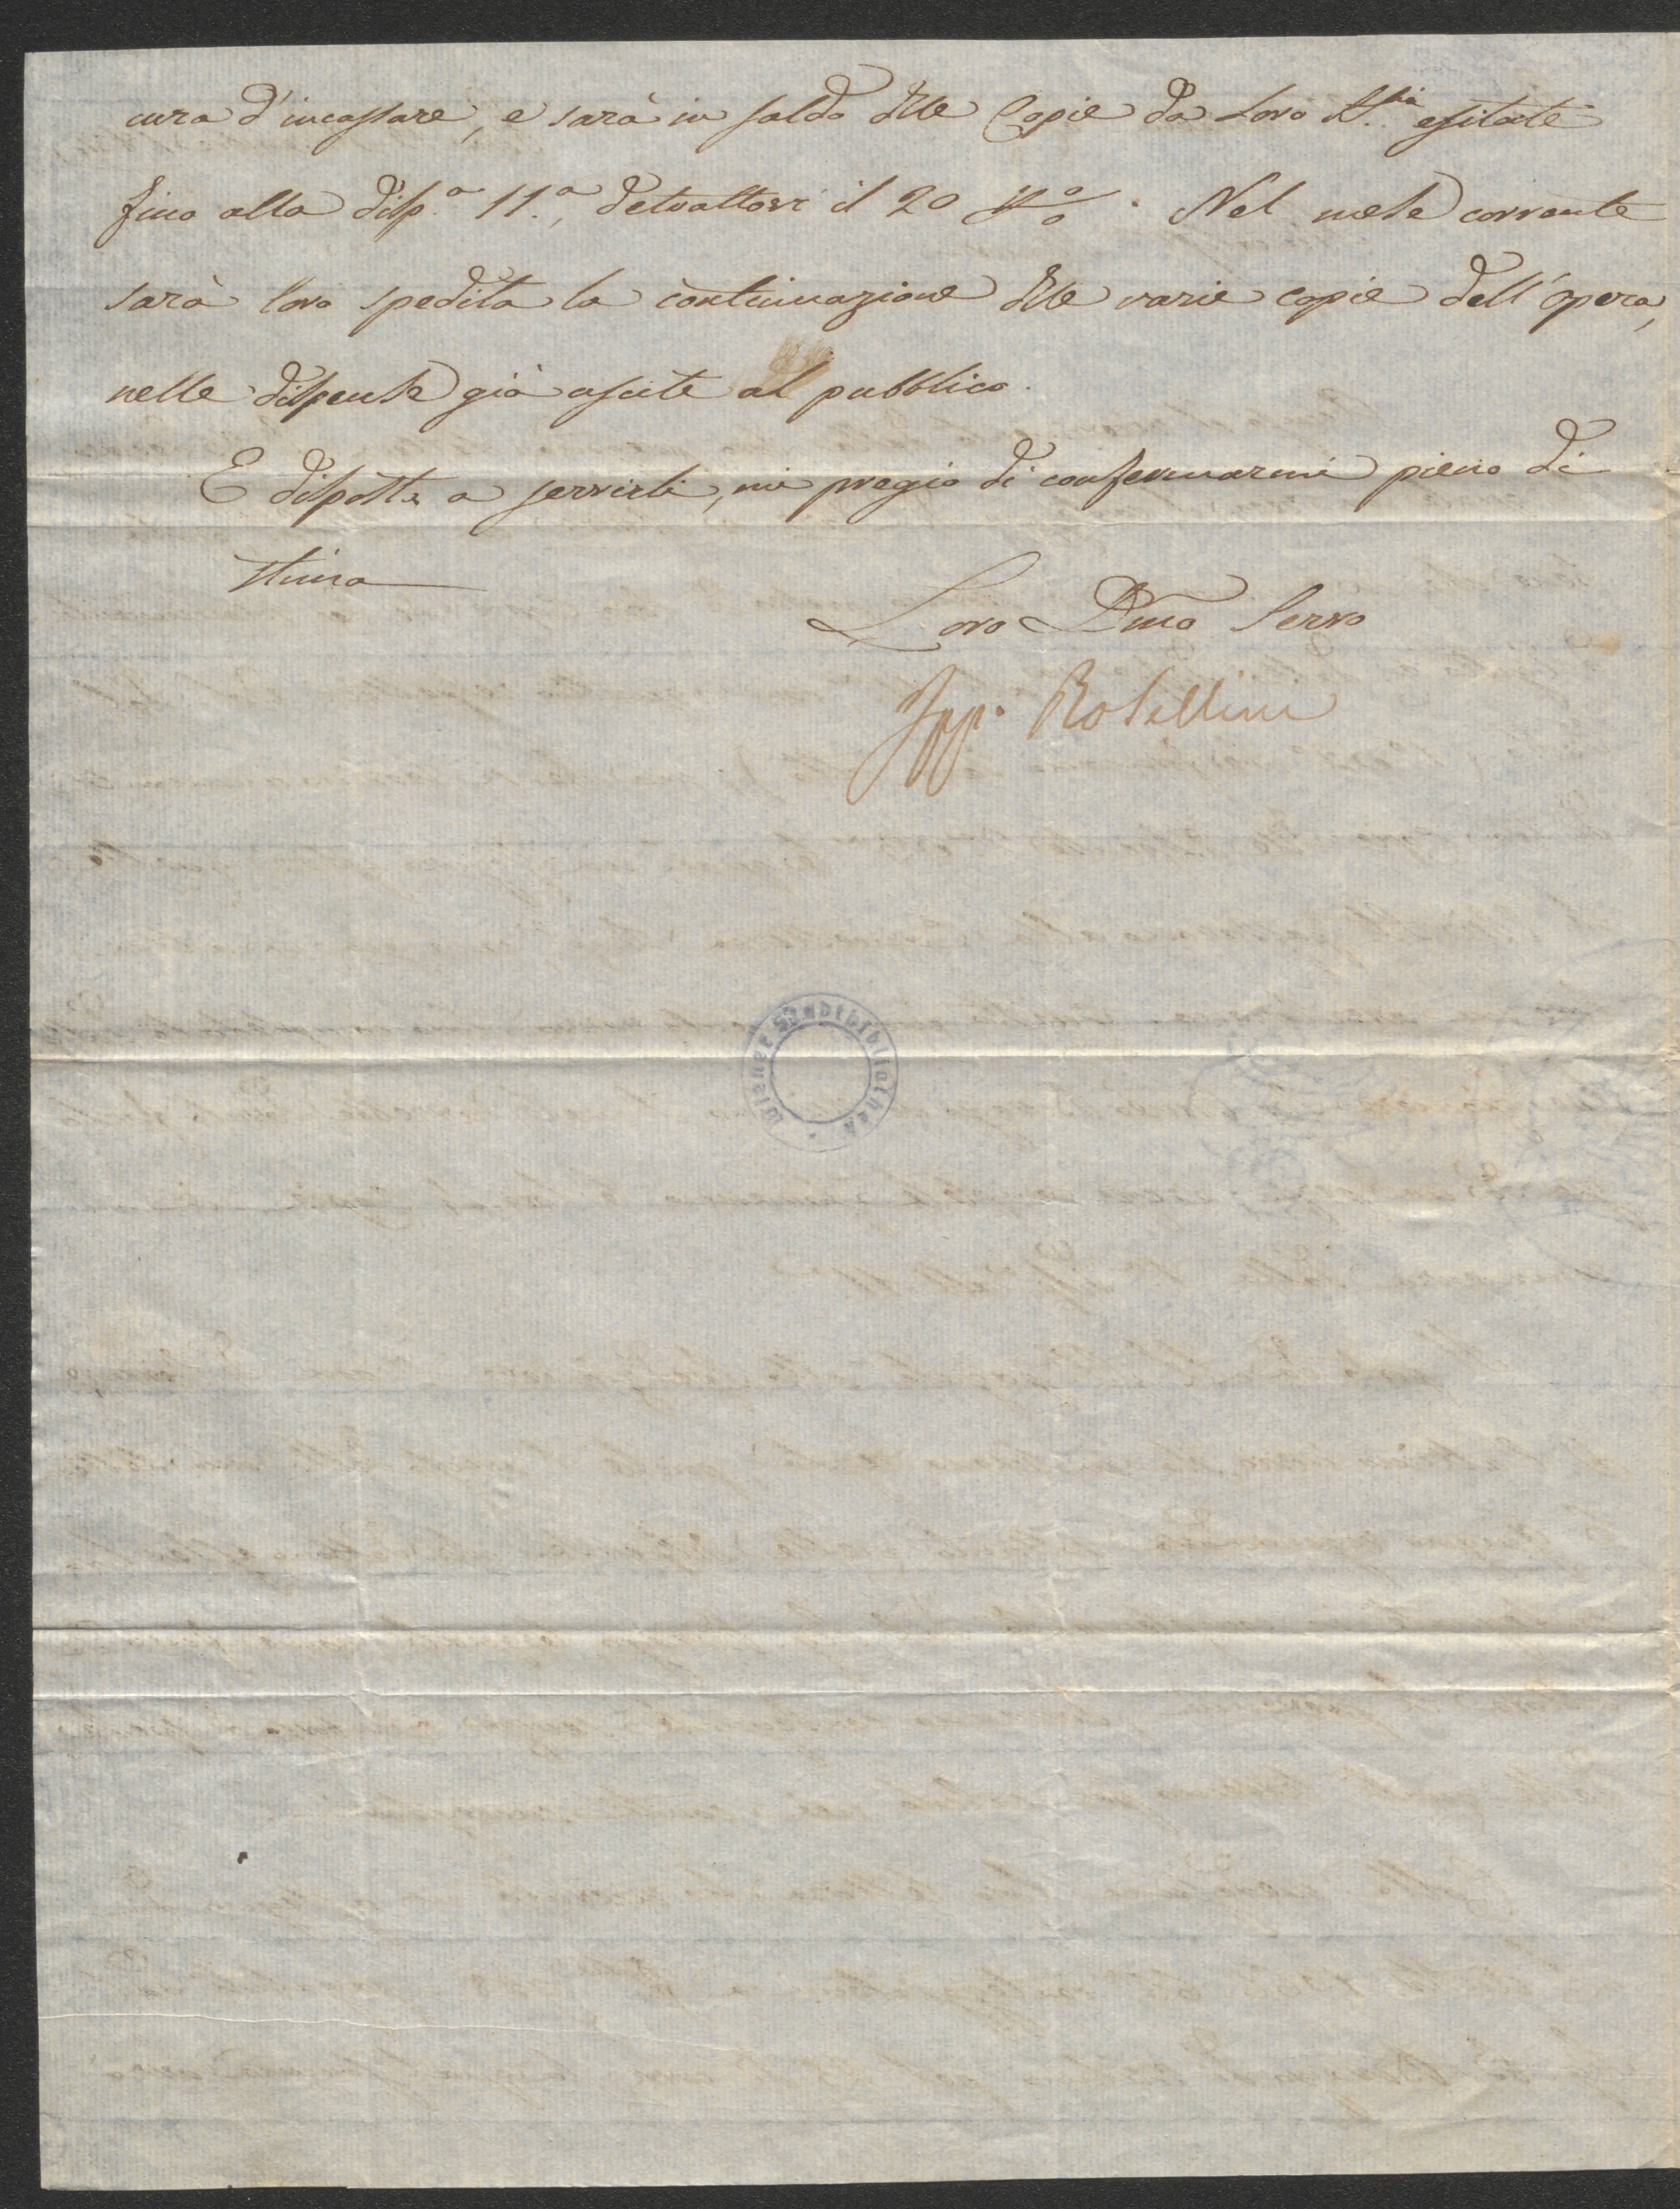 cura d'incassare, e sarà in saldo delle Copie da Loro S.rie esitate
fino alla disp.a 11.a, detrattovi il 20 %. Nel mese corrente
sarà loro spedita la continuazione delle varie copie dell'opera,
nelle dispense già uscite al pubblico.
E disposto a servirli, mi pregio di confermarmi pieno di
stima
Loro Dmo Servo
Ipp. Rosellini
Wiener Stadtbibliothek